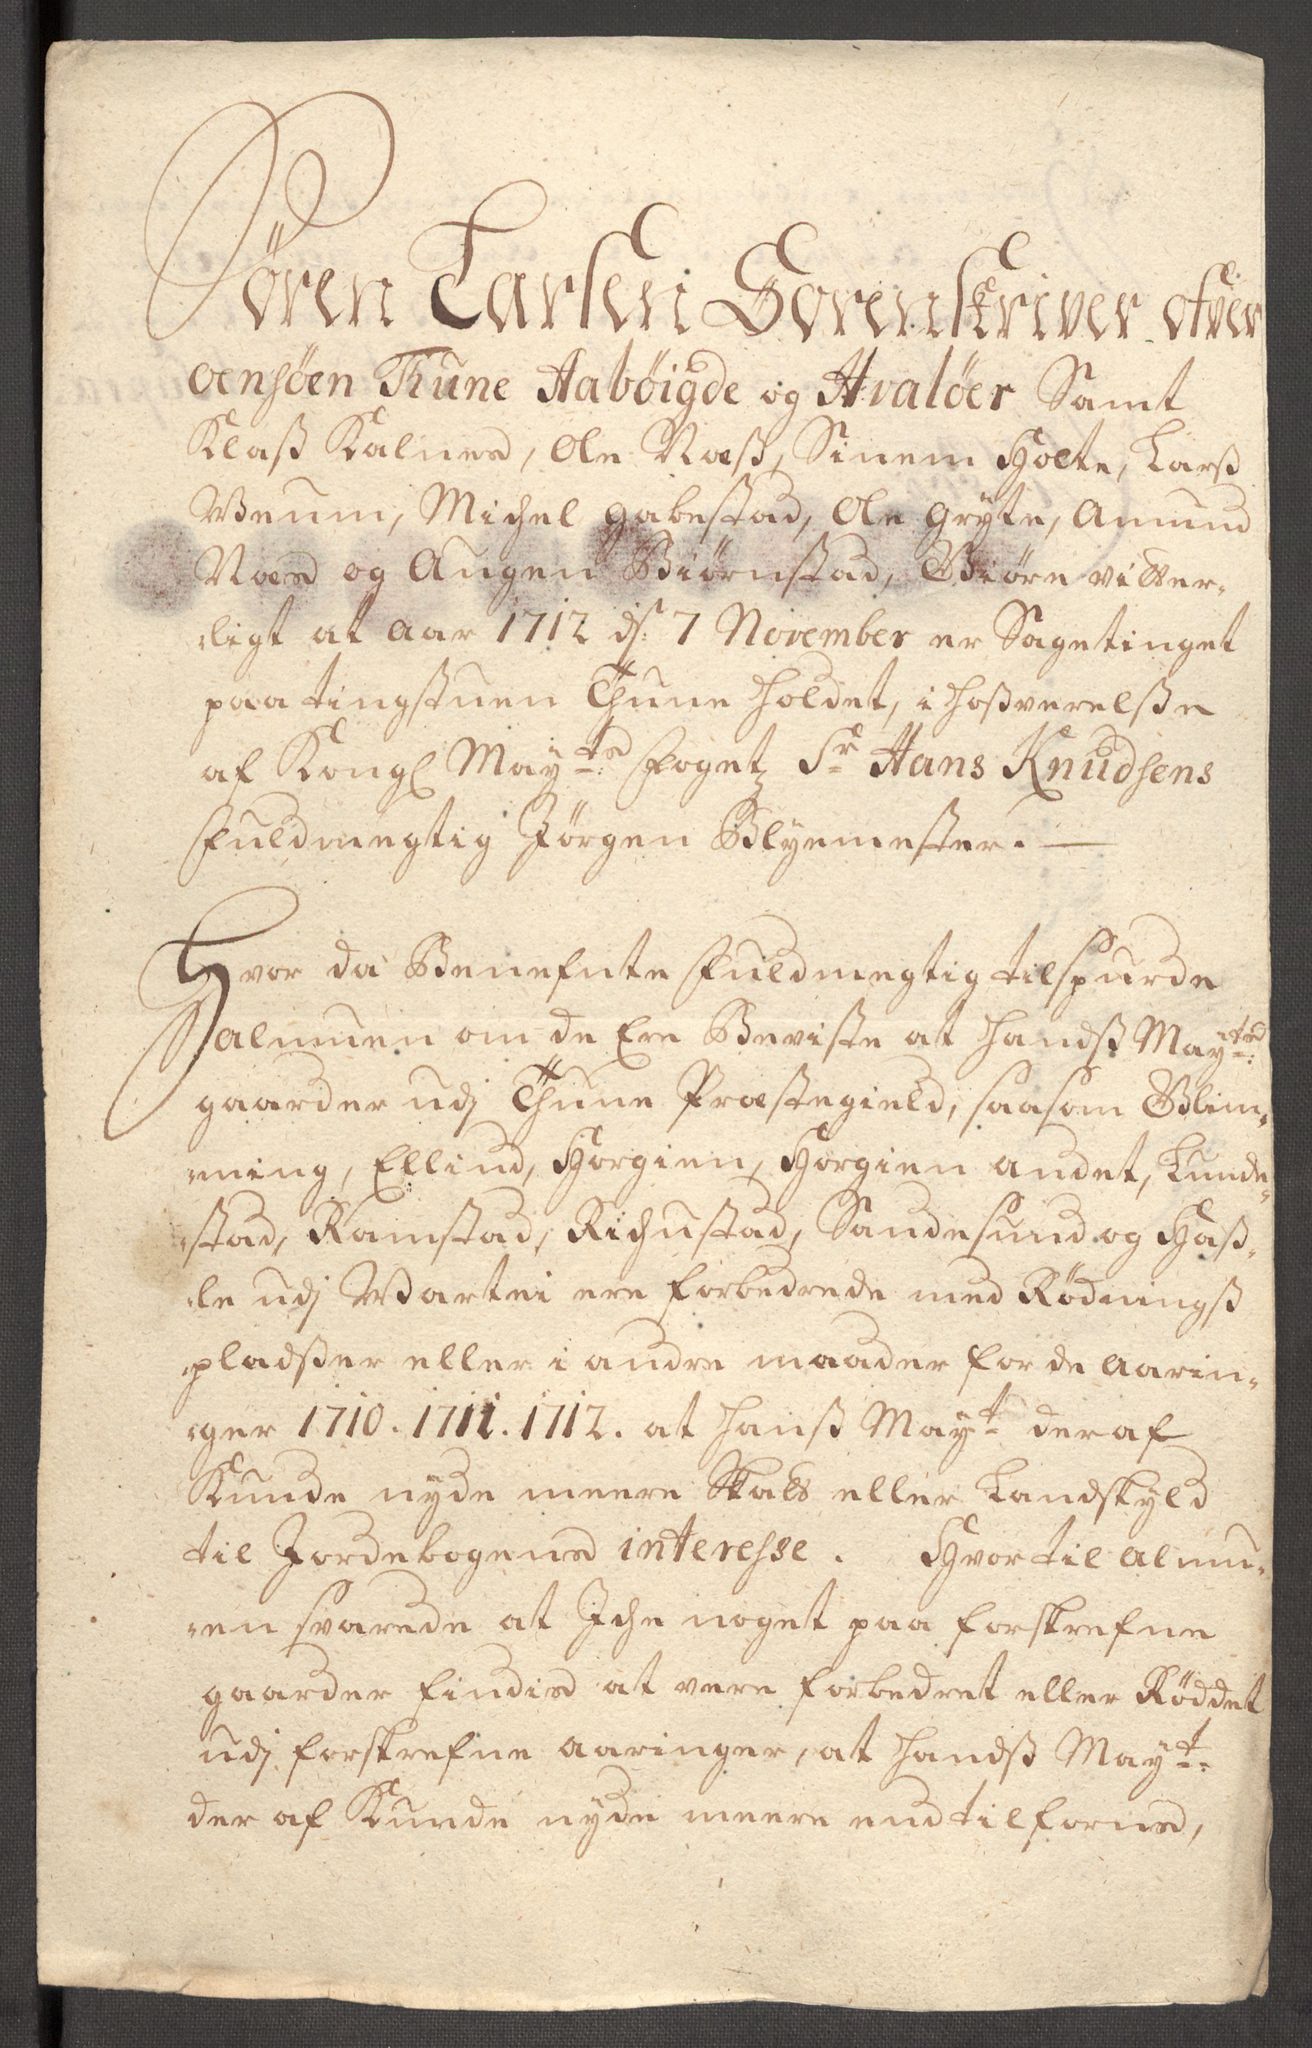 Sören Larsen Sorenskriver ofver
oensöen Thune Aaböigde og Hvalöer Samt
Klaß Kalnes, Ole Næß, Sinem Holte, Larß
Weum, Michel gabestad, Ole gryte, Amund
Noes og Augen Biörnstad, Giöre vitter¬
ligt at aar 1712 dſ: 7 November er Sagetinget
paa tingstuen Thune holdet, i hoßverelße
af Kongl May:ts foget Sr Hans Knudsens
fuldmegtig Jörgen Blyemester. —
Hvor da Benefnte fuldmegtig tilspurde
almuen om de Ere Beviste at handß May:ts
gaarder udj Thune Præstegield, saasom Glim¬
ming, Ellind, Horgien, Horgien andet, Lunde¬
stad, Ramstad, Richustad, Sandesund og Haß¬
le udj Wartei ere forbedrede med Rödningß
pladßer eller i andre maader for de aarin¬
ger 1710. 1711. 1712. at hanß May:t deraf
Kunde nyde meere Skatt eller Landskyld
til Jordebogens interesse. Hvortil almu¬
en svarede at Iche noget paa forskrefne
gaarder findis at vere forbedret eller Röddet
udj forskrefne aaringer, at handß May:t
der af Kunde nyde meere end tilforns,